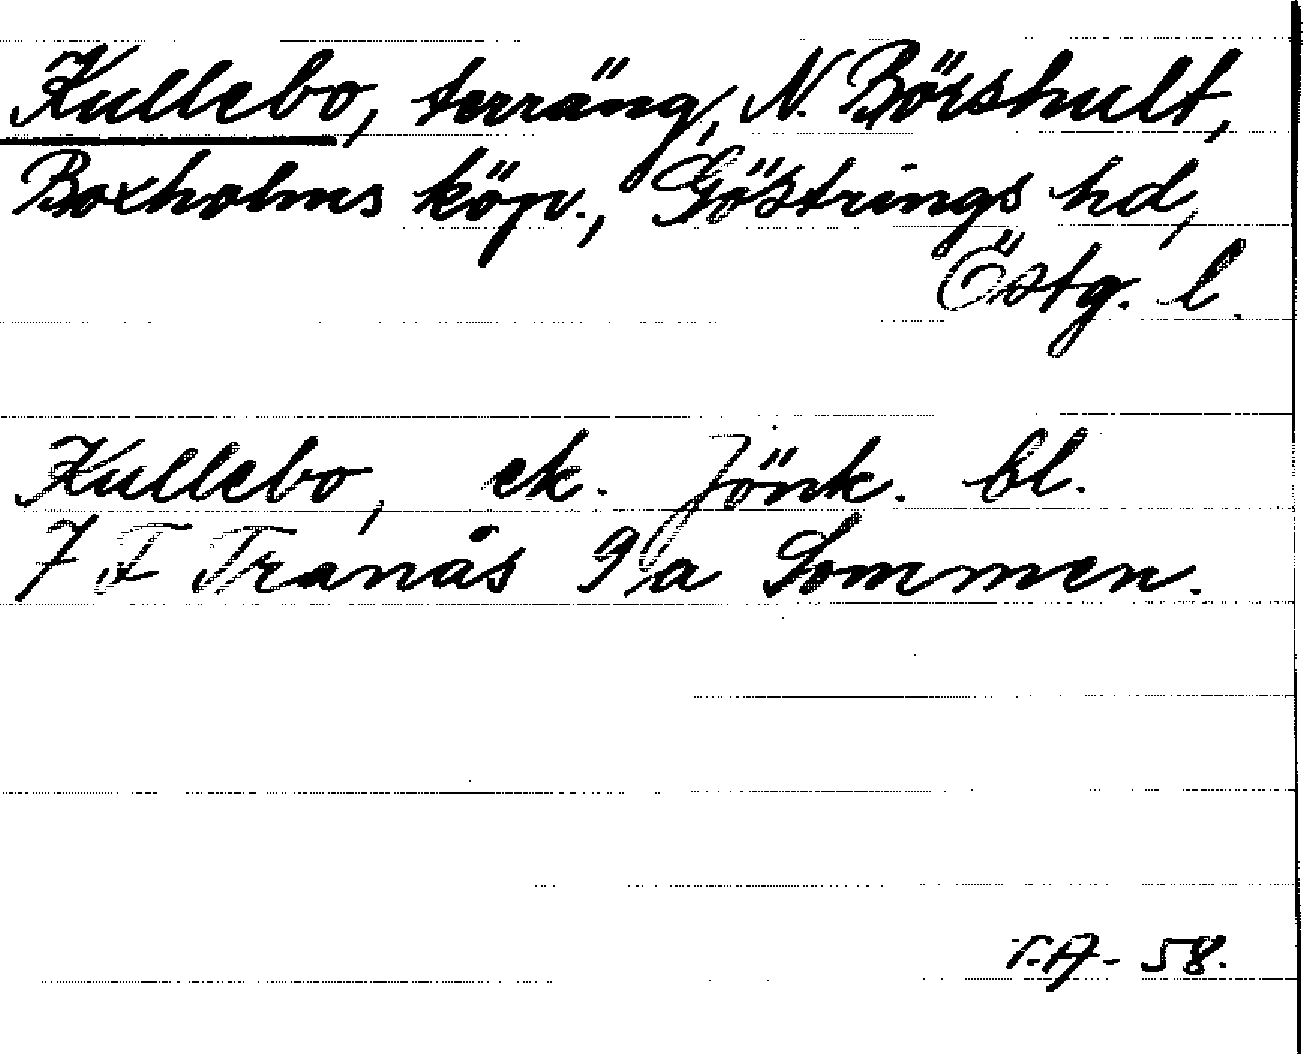 Kullebo, terräng, N. Börshult,
Boxholms köp., Göstrings hd,
Östg. l.
Kullebo, ek. Jönk. bl.
7 F Tranås 9 a Sommen.
T.A- 58.